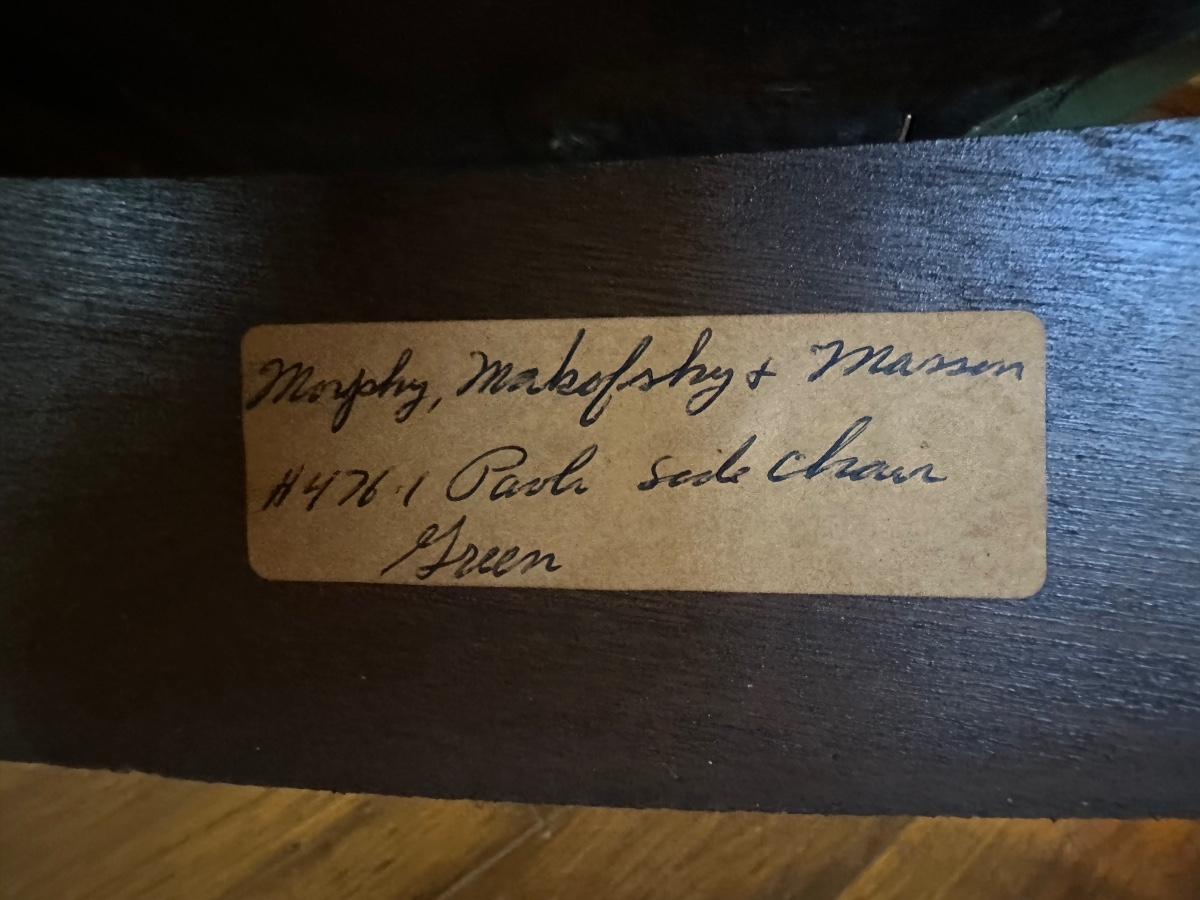 Morphy, Makofsky & Masson
#476.1 Paoli side chair
Green